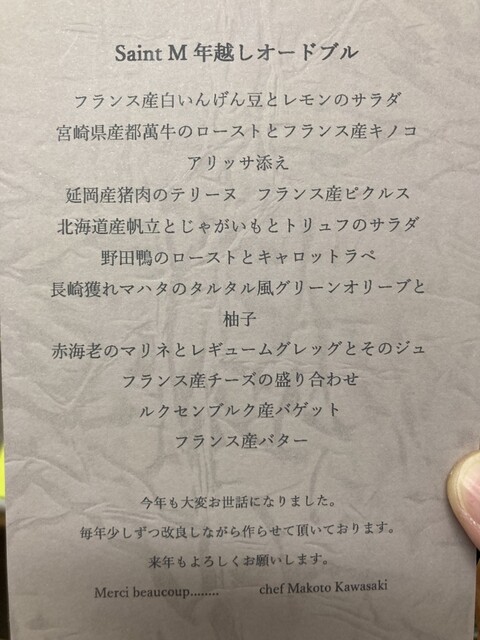 Saint M 年越しオードブル
フランス産白いんげん豆とレモンのサラダ
宮崎県産都萬牛のローストとフランス産キノコ
アリッサ添え
延岡産猪肉のテリーヌ　フランス産ピクルス
北海道産帆立とじゃがいもとトリュフのサラダ
野田鴨のローストとキャロットラペ
長崎獲れマハタのタルタル風グリーンオリーブと
柚子
赤海老のマリネとレギュームグレッグとそのジュ
フランス産チーズの盛り合わせ
ルクセンブルク産バゲット
フランス産バター
今年も大変お世話になりました。
毎年少しずつ改良しながら作らせて頂いております。
来年もよろしくお願いします。
Merci beaucoup........　chef Makoto Kawasaki